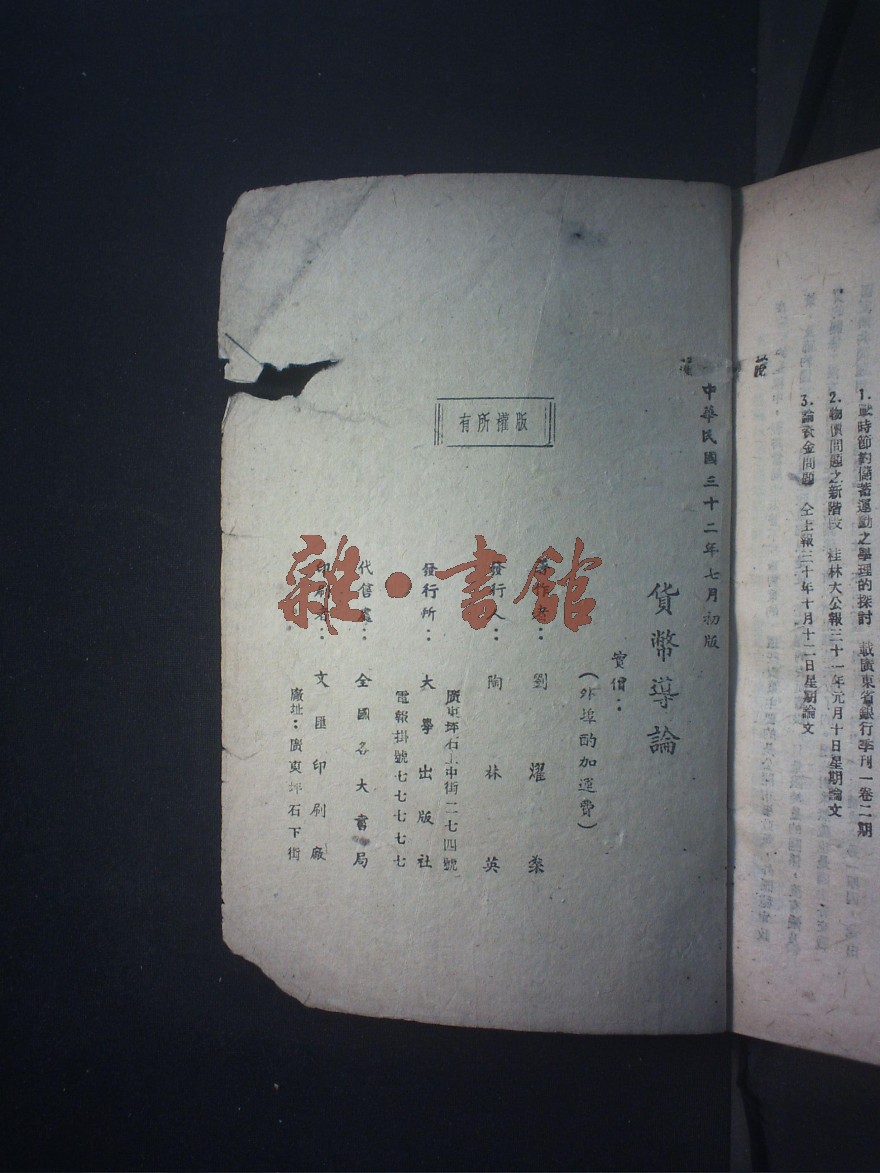 1.戰時節約儲蓄運動之學理的探討　載廣東省銀行季刊一卷二期
2.物價問題之新階段　桂林大公報三十一年元月十日星期論文
3.論黃金問題　仝上報三十年十月十二日星期論文
中華民國三十二年七月初版
貨幣導論
實價：
（外埠酌加運費）
著作者：劉燿燊
發行人：陶林英
發行所：大學出版社
廣東坪石上中街二七四號
電報掛號七七七七七
代售處：全國各大書局
印刷者：文匯印刷廠
廠址：廣東坪石下街
有所權版
雜·書館